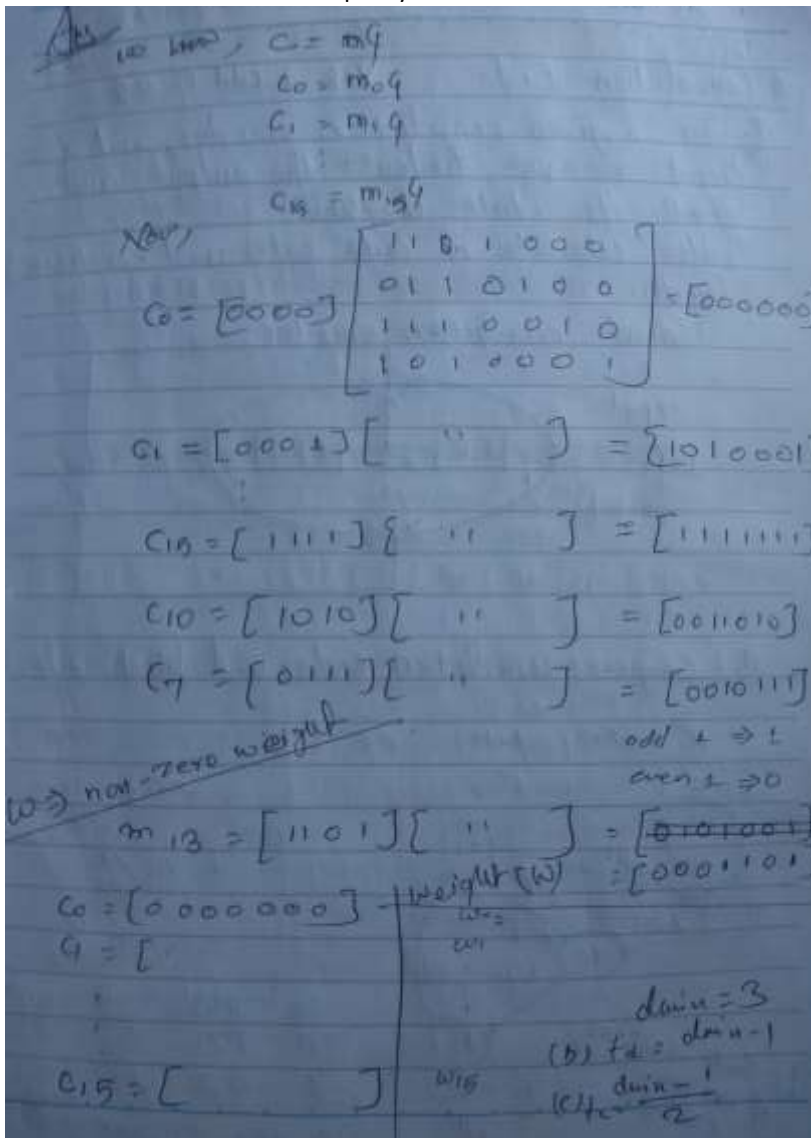 Ans we know, C = mG
C0 = m0G
C1 = m1G
:
C15 = m15G
Now,
C0 = [0000] [1 1 0 1 0 0 0
0 1 1 0 1 0 0
1 1 1 0 0 1 0
1 0 1 0 0 0 1] = [000000
C1 = [0001] [ " ] = [1010001]
:
C15 = [1111] [ " ] = [1111111]
C10 = [1010] [ " ] = [0011010]
C7 = [0111] [ " ] = [0010111]
odd 1 ⇒ 1
even 1 ⇒ 0
w ⇒ non-zero weight
m13 = [1101] [ " ] = [0101001]
= [0001101]
C0 = [0000000] weight (w)
w0 =
C1 = [ w1
:
dmin = 3
(b) td = dmin - 1
C15 = [ ] w15
(c) tc = dmin - 1 / 2